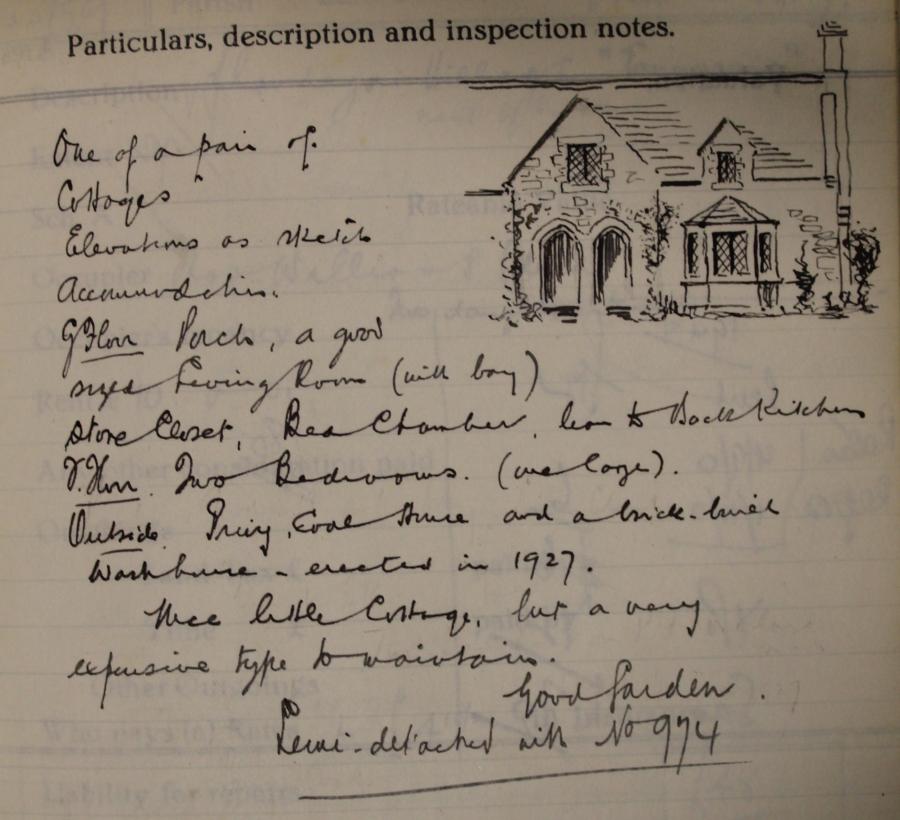 Particulars, description and inspection notes.
One of a pair of
Cottages
Elevations as sketch
Accommodation.
G. Floor Porch, a good
sized Living Room (with bay)
Store Closet, Bed Chamber, lean to Back Kitchen
F. Floor. Two Bedrooms. (one large).
Outside. Privy, Coal House and a brick-built
Washhouse - erected in 1927.
Nice little Cottage, but a very
expensive type to maintain.
Good Garden.
Semi-detached with No 974